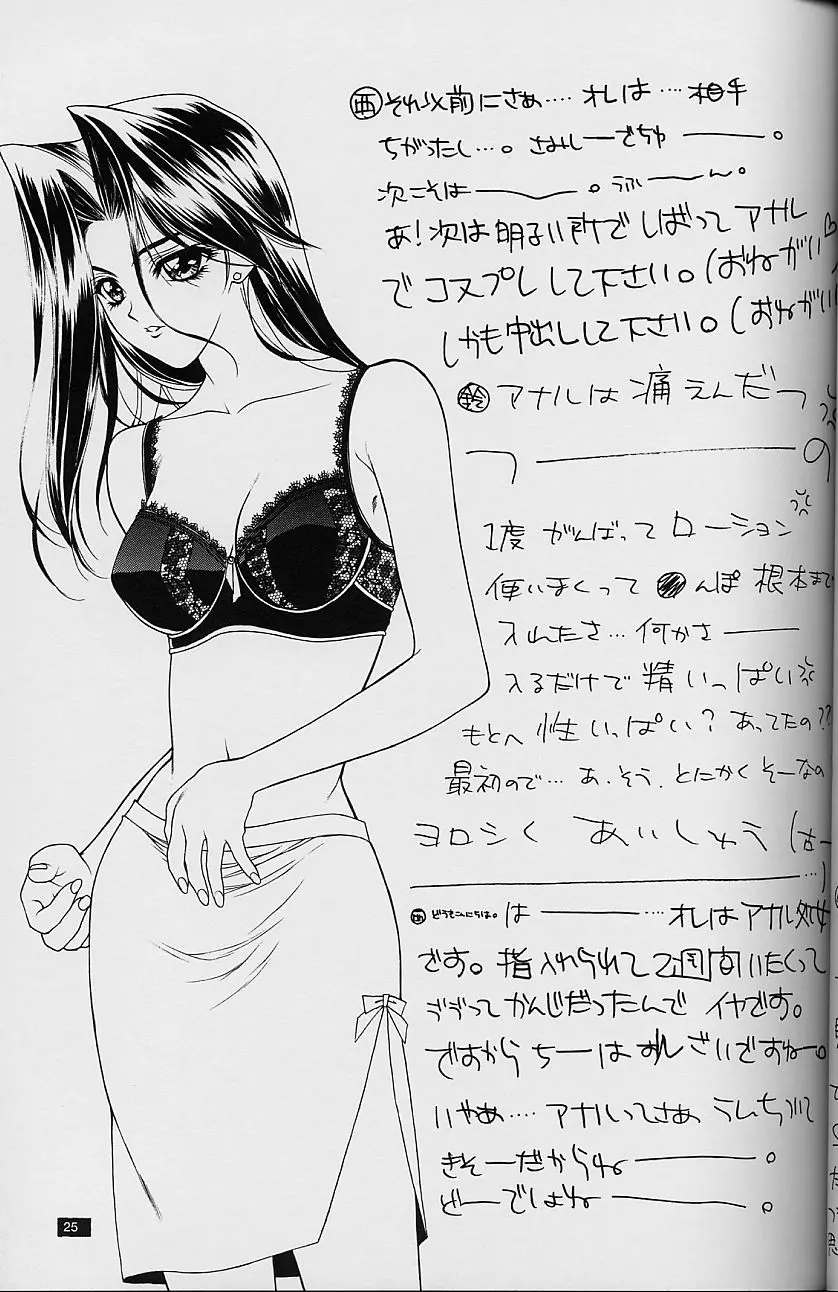 西 それ以前にさぁ‥‥ オレは ‥‥ 相手
ちがったし…。さみしーでちゅ ー。
次こそは ー。うふーん。
あ!次は明るい所でしばってアナル
でコスプレして下さい。(おねがい♡
しかも中出しして下さい。(おねがい
鈴 アナルは痛えんだっ
つーの
1度 がんばって ローション
使いまくって ●んぽ 根本まで
入れたさ… 何かさー
入るだけで 精いっぱい
もとへ 性いっぱい? あってたの??
最初ので… あ、そう、とにかく そーなの
ヨロシく あいしゅう (古ー
…)
西 どうもこんにちは。は ー‥‥オレはアナル処女
です。指入れられて2週間いたくって
ううってかんじだったんで イヤです。
ですから ちーは ざいですねー。
いやぁ‥‥ アナルってさぁ うんちづいて
きそーだからねー。
どーでしょねー。
25